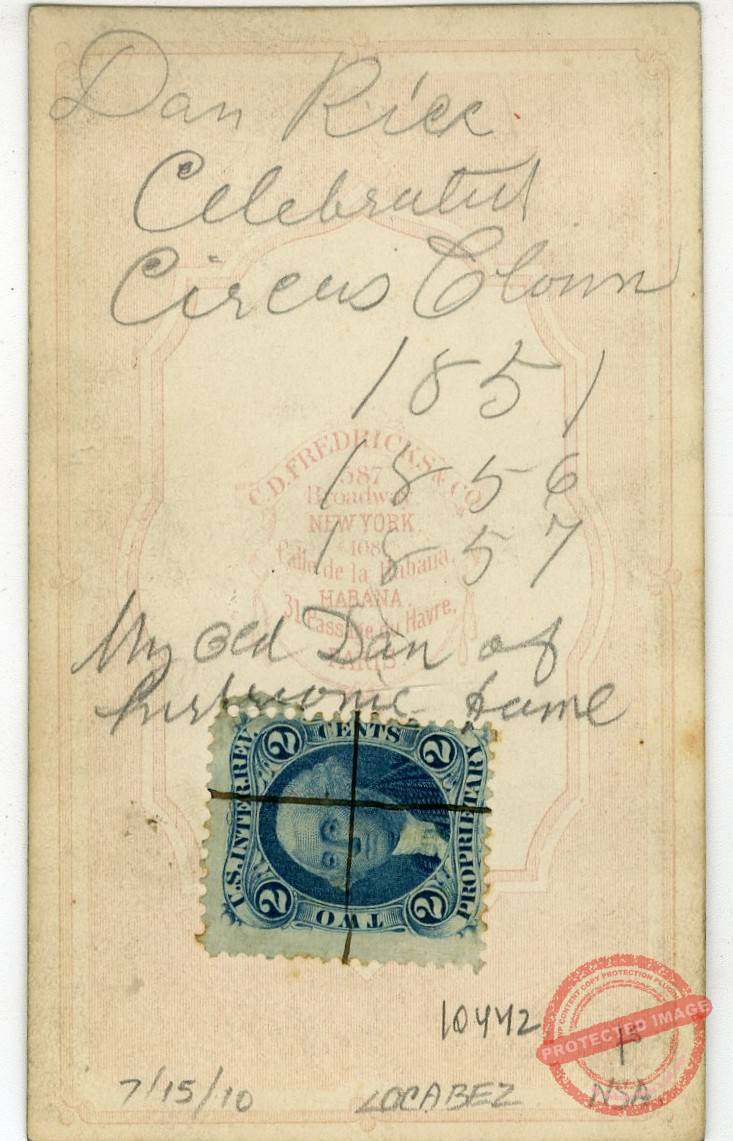 Dan Rice
Celebrated
Circus Clown
1851
1856
1857
C.D. FREDRICKS & CO.
587
Broadway
NEW YORK.
108
Calle de la Habana.
HABANA
31 Passage du Havre.
PARIS
My Old Dan of
fame
U.S. INTER. REV.
2 CENTS 2
PROPRIETARY
2 TWO 2
10442
7/15/10 LOCABEZ NSA.
WP CONTENT COPY PROTECTION PLUGIN
PROTECTED IMAGE